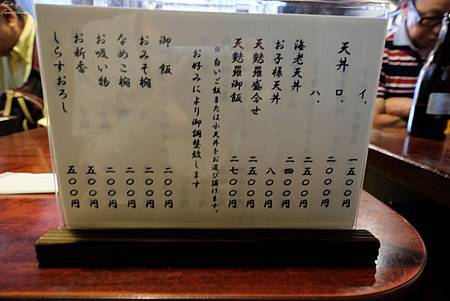 イ、 一五〇〇円
天丼 ロ、 二〇〇〇円
ハ、 二五〇〇円
海老天丼 二四〇〇円
お子様天丼 八〇〇円
天麩羅盛合せ 二五〇〇円
天麩羅御飯 二七〇〇円
※白いご飯または小天丼をお選び頂けます。
お好みにより御調整致します
御飯 二〇〇円
おみそ椀 二〇〇円
なめこ椀 二〇〇円
お吸い物 五〇〇円
お新香 五〇〇円
しらすおろし 五〇〇円